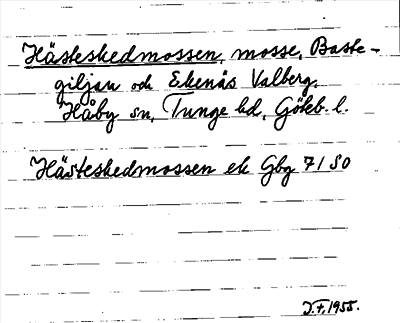 Hästeskedmossen, mosse, Baste-
giljan och Ekenäs Valberg.
Håby sn, Tunge hd, Göteb. l.
Hästeskedmossen ek Gbg 71 SO
1955.